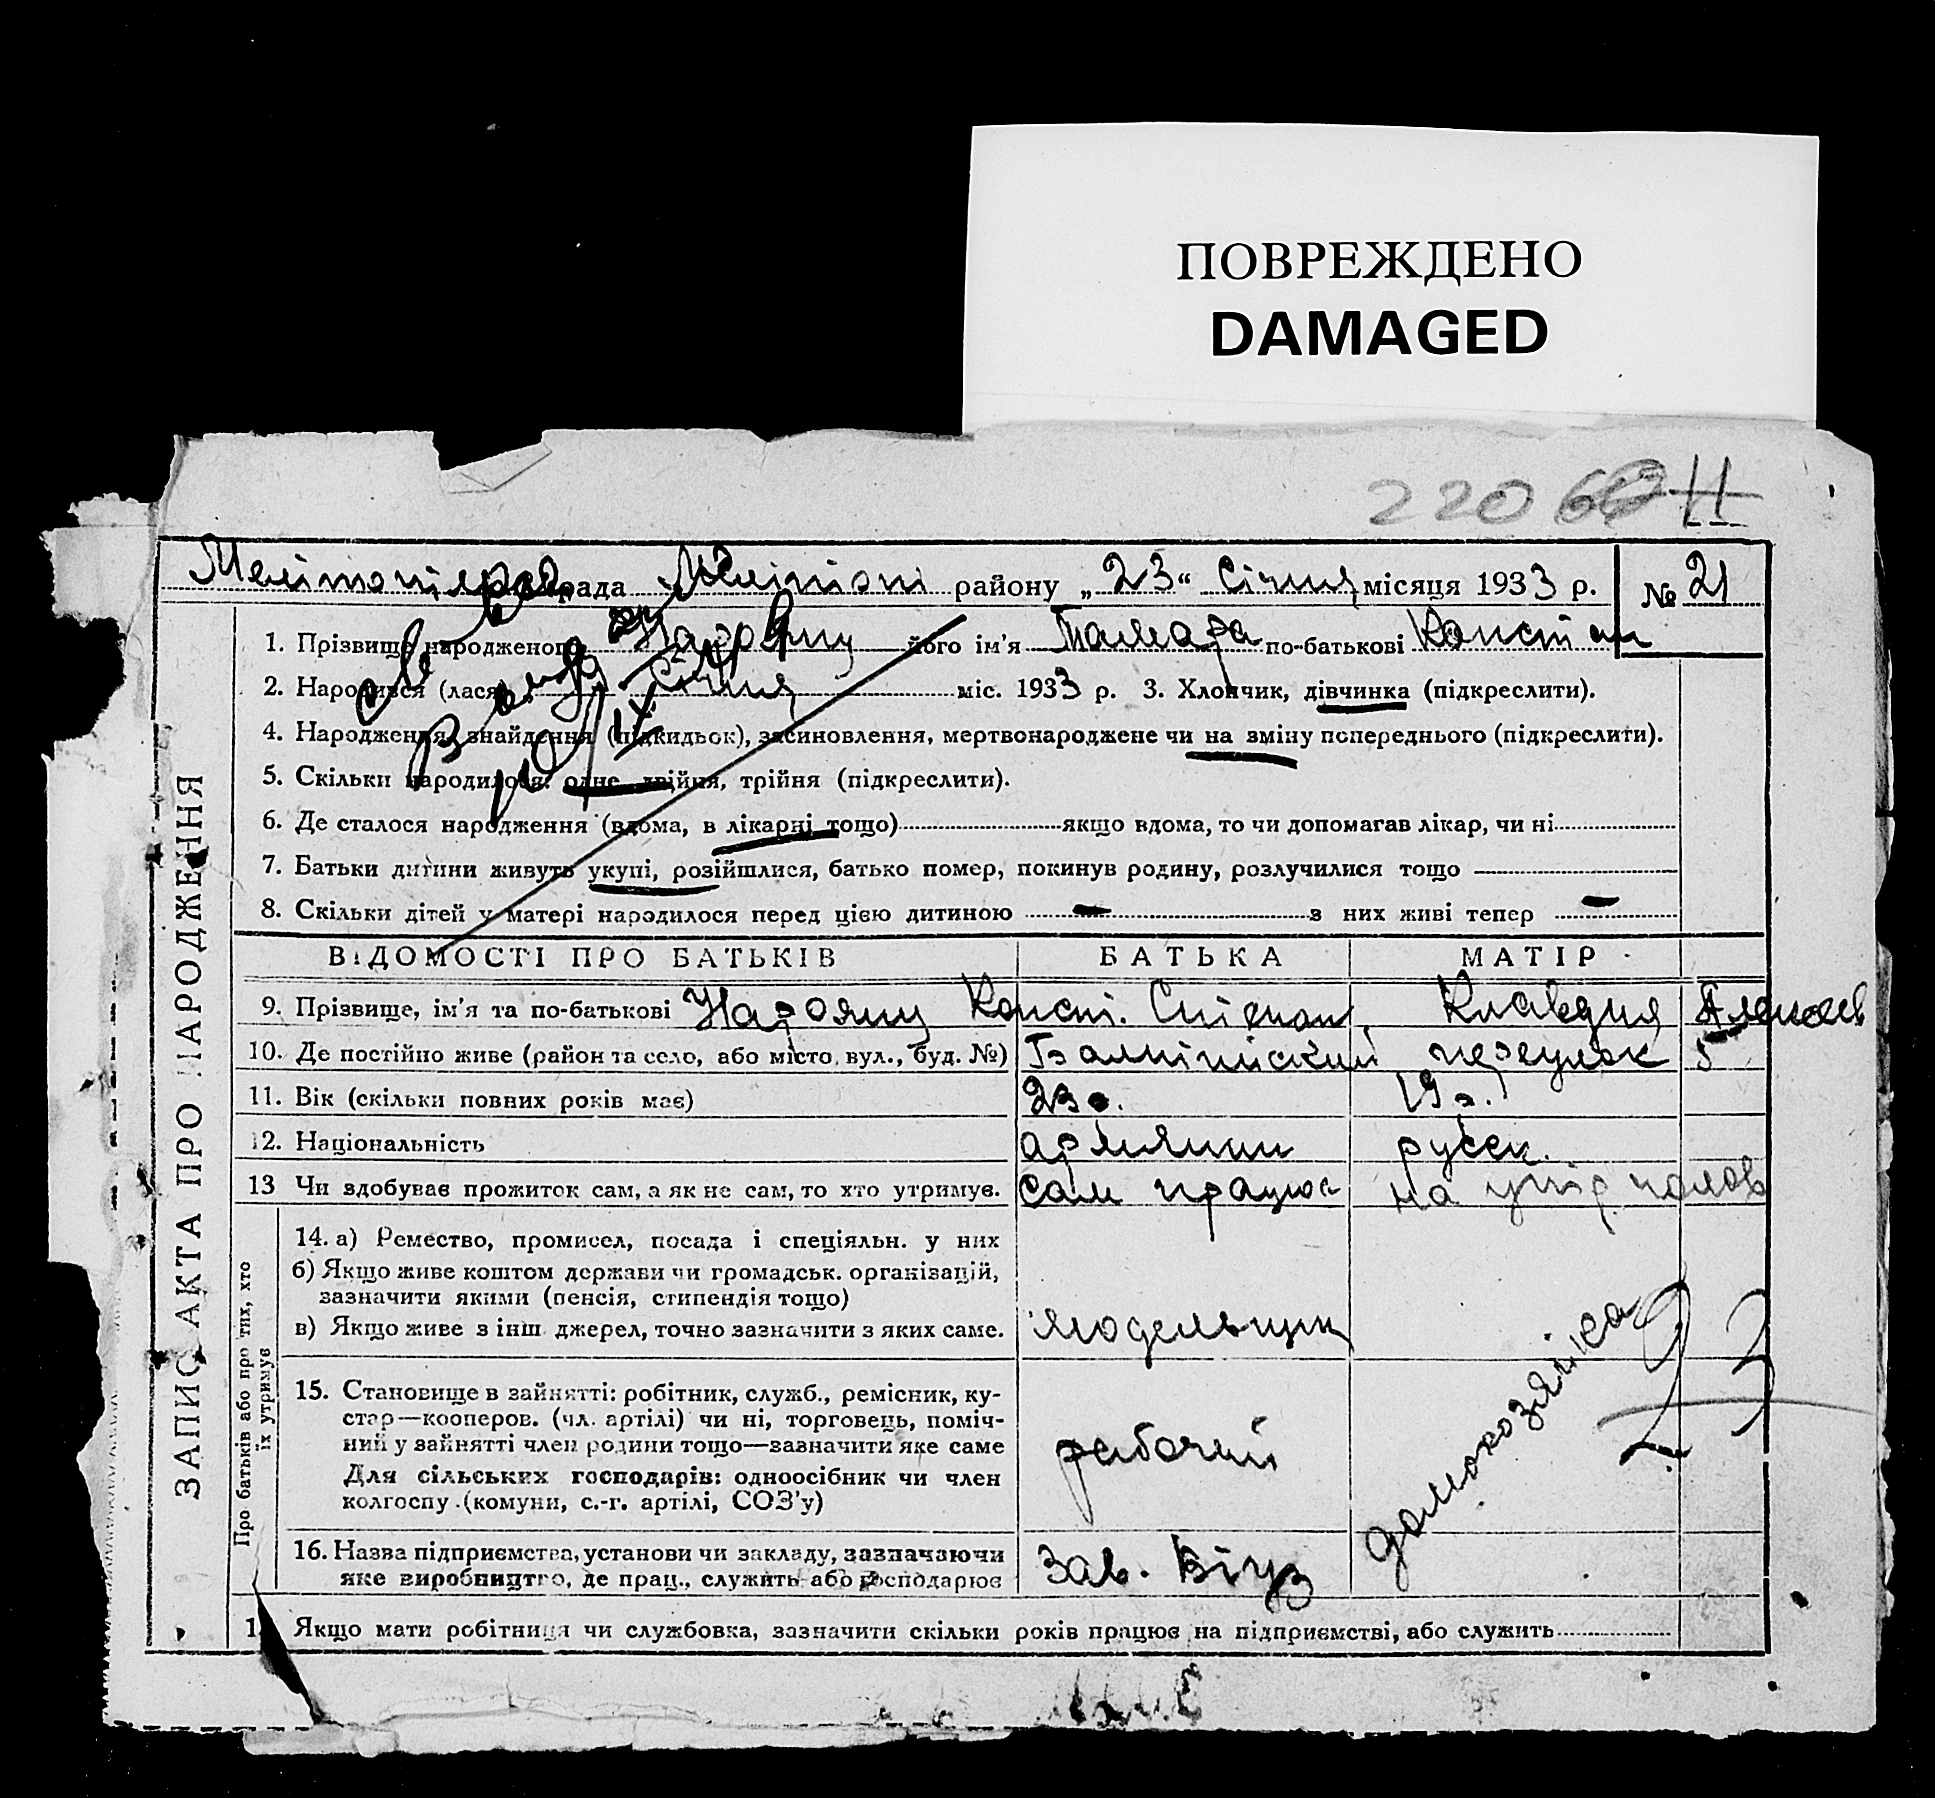 ПОВРЕЖДЕНО
DAMAGED
220 11
рада Меліпоп району „23“ Січня місяця 1933 р. № 21
1. Прізвище народженого його ім'я Тамара по-батькові Констан
2. Народився (лася) Січня міс. 1933 р. 3. Хлопчик, дівчинка (підкреслити).
4. Народження, знайдення (підкидьок), засиновлення, мертвонароджене чи на зміну попереднього (підкреслити).
5. Скільки народилося: одне, двійня, трійня (підкреслити).
6. Де сталося народження (вдома, в лікарні тощо) якщо вдома, то чи допомагав лікар, чи ні
7. Батьки дитини живуть укупі, розійшлися, батько помер, покинув родину, розлучилися тощо
8. Скільки дітей у матері народилося перед цією дитиною — з них живі тепер —
ВІДОМОСТІ ПРО БАТЬКІВ БАТЬКА МАТІР
9. Прізвище, ім'я та по-батькові Нароянц Конст. Степан. Клавдия Алексеев
10. Де постійно живе (район та село, або місто, вул., буд. №) Балтійський переулок 5
11. Вік (скільки повних років має) 23 р. 19 р.
12. Національність армянин русск.
13 Чи здобував прожиток сам, а як не сам, то хто утримує. сам працює на утр. чолов
14. а) Ремество, промисел, посада і спеціяльн. у них
б) Якщо живе коштом держави чи громадськ. організацій,
зазначити якими (пенсія, стипендія тощо)
в) Якщо живе з інш. джерел, точно зазначити з яких саме. модельщик
домохозяйка
23
15. Становище в зайнятті: робітник, служб., ремісник, ку-
стар—кооперов. (чл. артілі) чи ні, торговець, поміч-
ний у зайнятті член родини тощо—зазначити яке саме
Для сільських господарів: одноосібник чи член
колгоспу (комуни, с.-г. артілі, СОЗ'у)
рабочий
16. Назва підприємства, установи чи закладу, зазначаючи
яке виробництво, де прац., служить або господарює
Зав.
Якщо мати робітниця чи службовка, зазначити скільки років працює на підприємстві, або служить
ЗАПИС АКТА ПРО НАРОДЖЕННЯ
Про батьків або про тих, хто
їх утримує